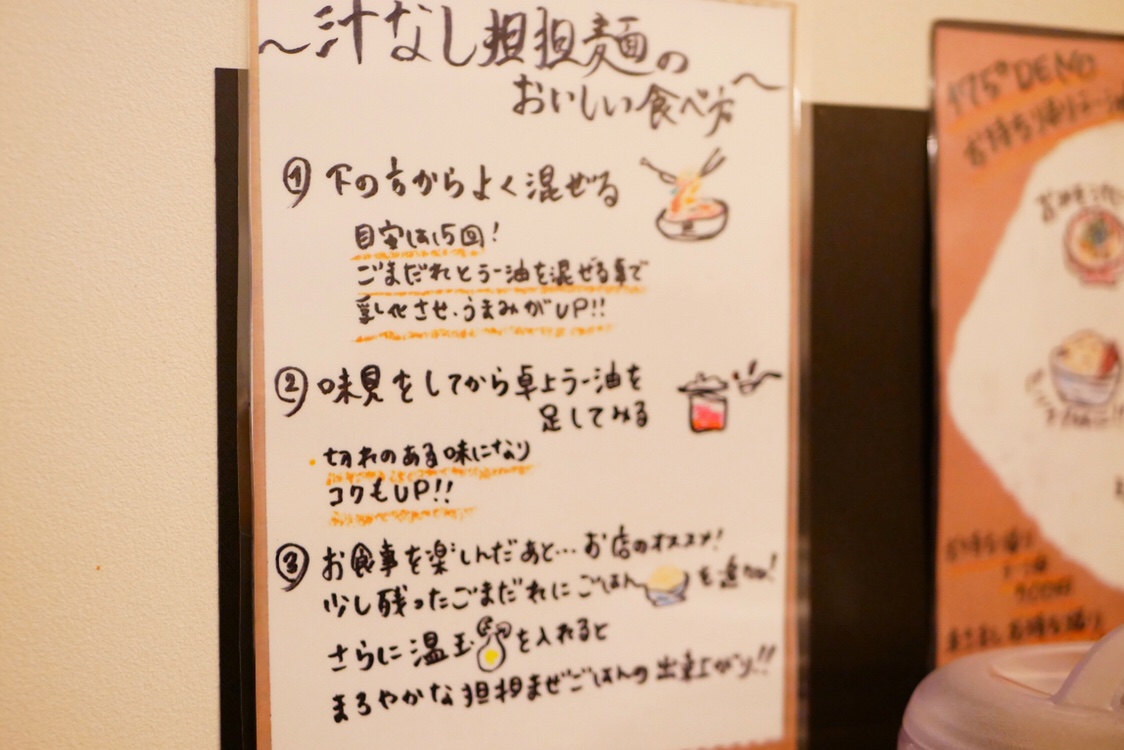 ～汁なし担担麺の
おいしい食べ方～
① 下の方からよく混ぜる
目安は15回!
ごまだれとラー油を混ぜる事で
乳化させ、うまみがUP!!
② 味見をしてから卓上ラー油を
足してみる
・切れのある味になり
コクもUP!!
③ お食事を楽しんだあと…お店のオススメ!
少し残ったごまだれにごはんを追加!
さらに温玉を入れると
まろやかな担担まぜごはんの出来上がり!!
175°DENO
お持ち帰り